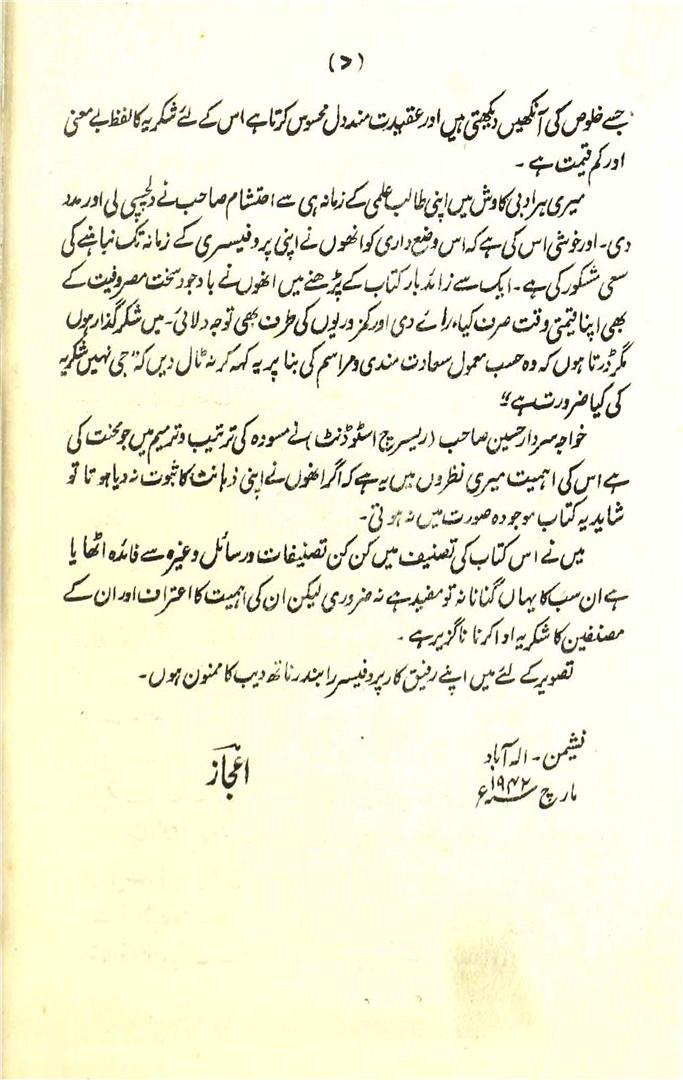 (د)
جسے خلوص کی آنکھیں دیکھتی ہیں اور عقیدت مند دل محسوس کرتا ہے اس کے لئے شکریہ کا لفظ بے معنی
اور کم قیمت ہے ۔
میری ہر ادبی کاوش میں اپنی طالب علمی کے زمانہ ہی سے احتشام صاحب نے دلچسپی لی اور مدد
دی۔ اور خوشی اس کی ہے کہ اس وضع داری کو انھوں نے اپنی پروفیسری کے زمانہ تک نباہنے کی
سعی مشکور کی ہے۔ ایک سے زائد بار کتاب کے پڑھنے میں انھوں نے باوجود سخت مصروفیت کے
بھی اپنا قیمتی وقت صرف کیا، رائے دی اور کمزوریوں کی طرف بھی توجہ دلائی۔ میں شکر گذار ہوں
مگر ڈرتا ہوں کہ وہ حسب معمول سعادت مندی و مراسم کی بنا پر یہ کہہ کر نہ ٹال دیں کہ "جی نہیں شکریہ
کی کیا ضرورت ہے"
خواجہ سردار حسین صاحب (ریسرچ اسٹوڈنٹ) نے مسودہ کی ترتیب و ترمیم میں جو محنت کی
ہے اس کی اہمیت میری نظروں میں یہ ہے کہ اگر انھوں نے اپنی ذہانت کا ثبوت نہ دیا ہوتا تو
شاید یہ کتاب موجودہ صورت میں نہ ہوتی۔
میں نے اس کتاب کی تصنیف میں کن کن تصنیفات و رسائل وغیرہ سے فائدہ اٹھایا
ہے ان سب کا یہاں گنانا نہ تو مفید ہے نہ ضروری لیکن ان کی اہمیت کا اعتراف اور ان کے
مصنفین کا شکریہ ادا کرنا ناگزیر ہے ۔
تصویر کے لئے میں اپنے رفیق کار پروفیسر رابندر ناتھ دیب کا ممنون ہوں۔
نشیمن ۔ الہ آباد
مارچ ۱۹۴۲ء
اعجاز